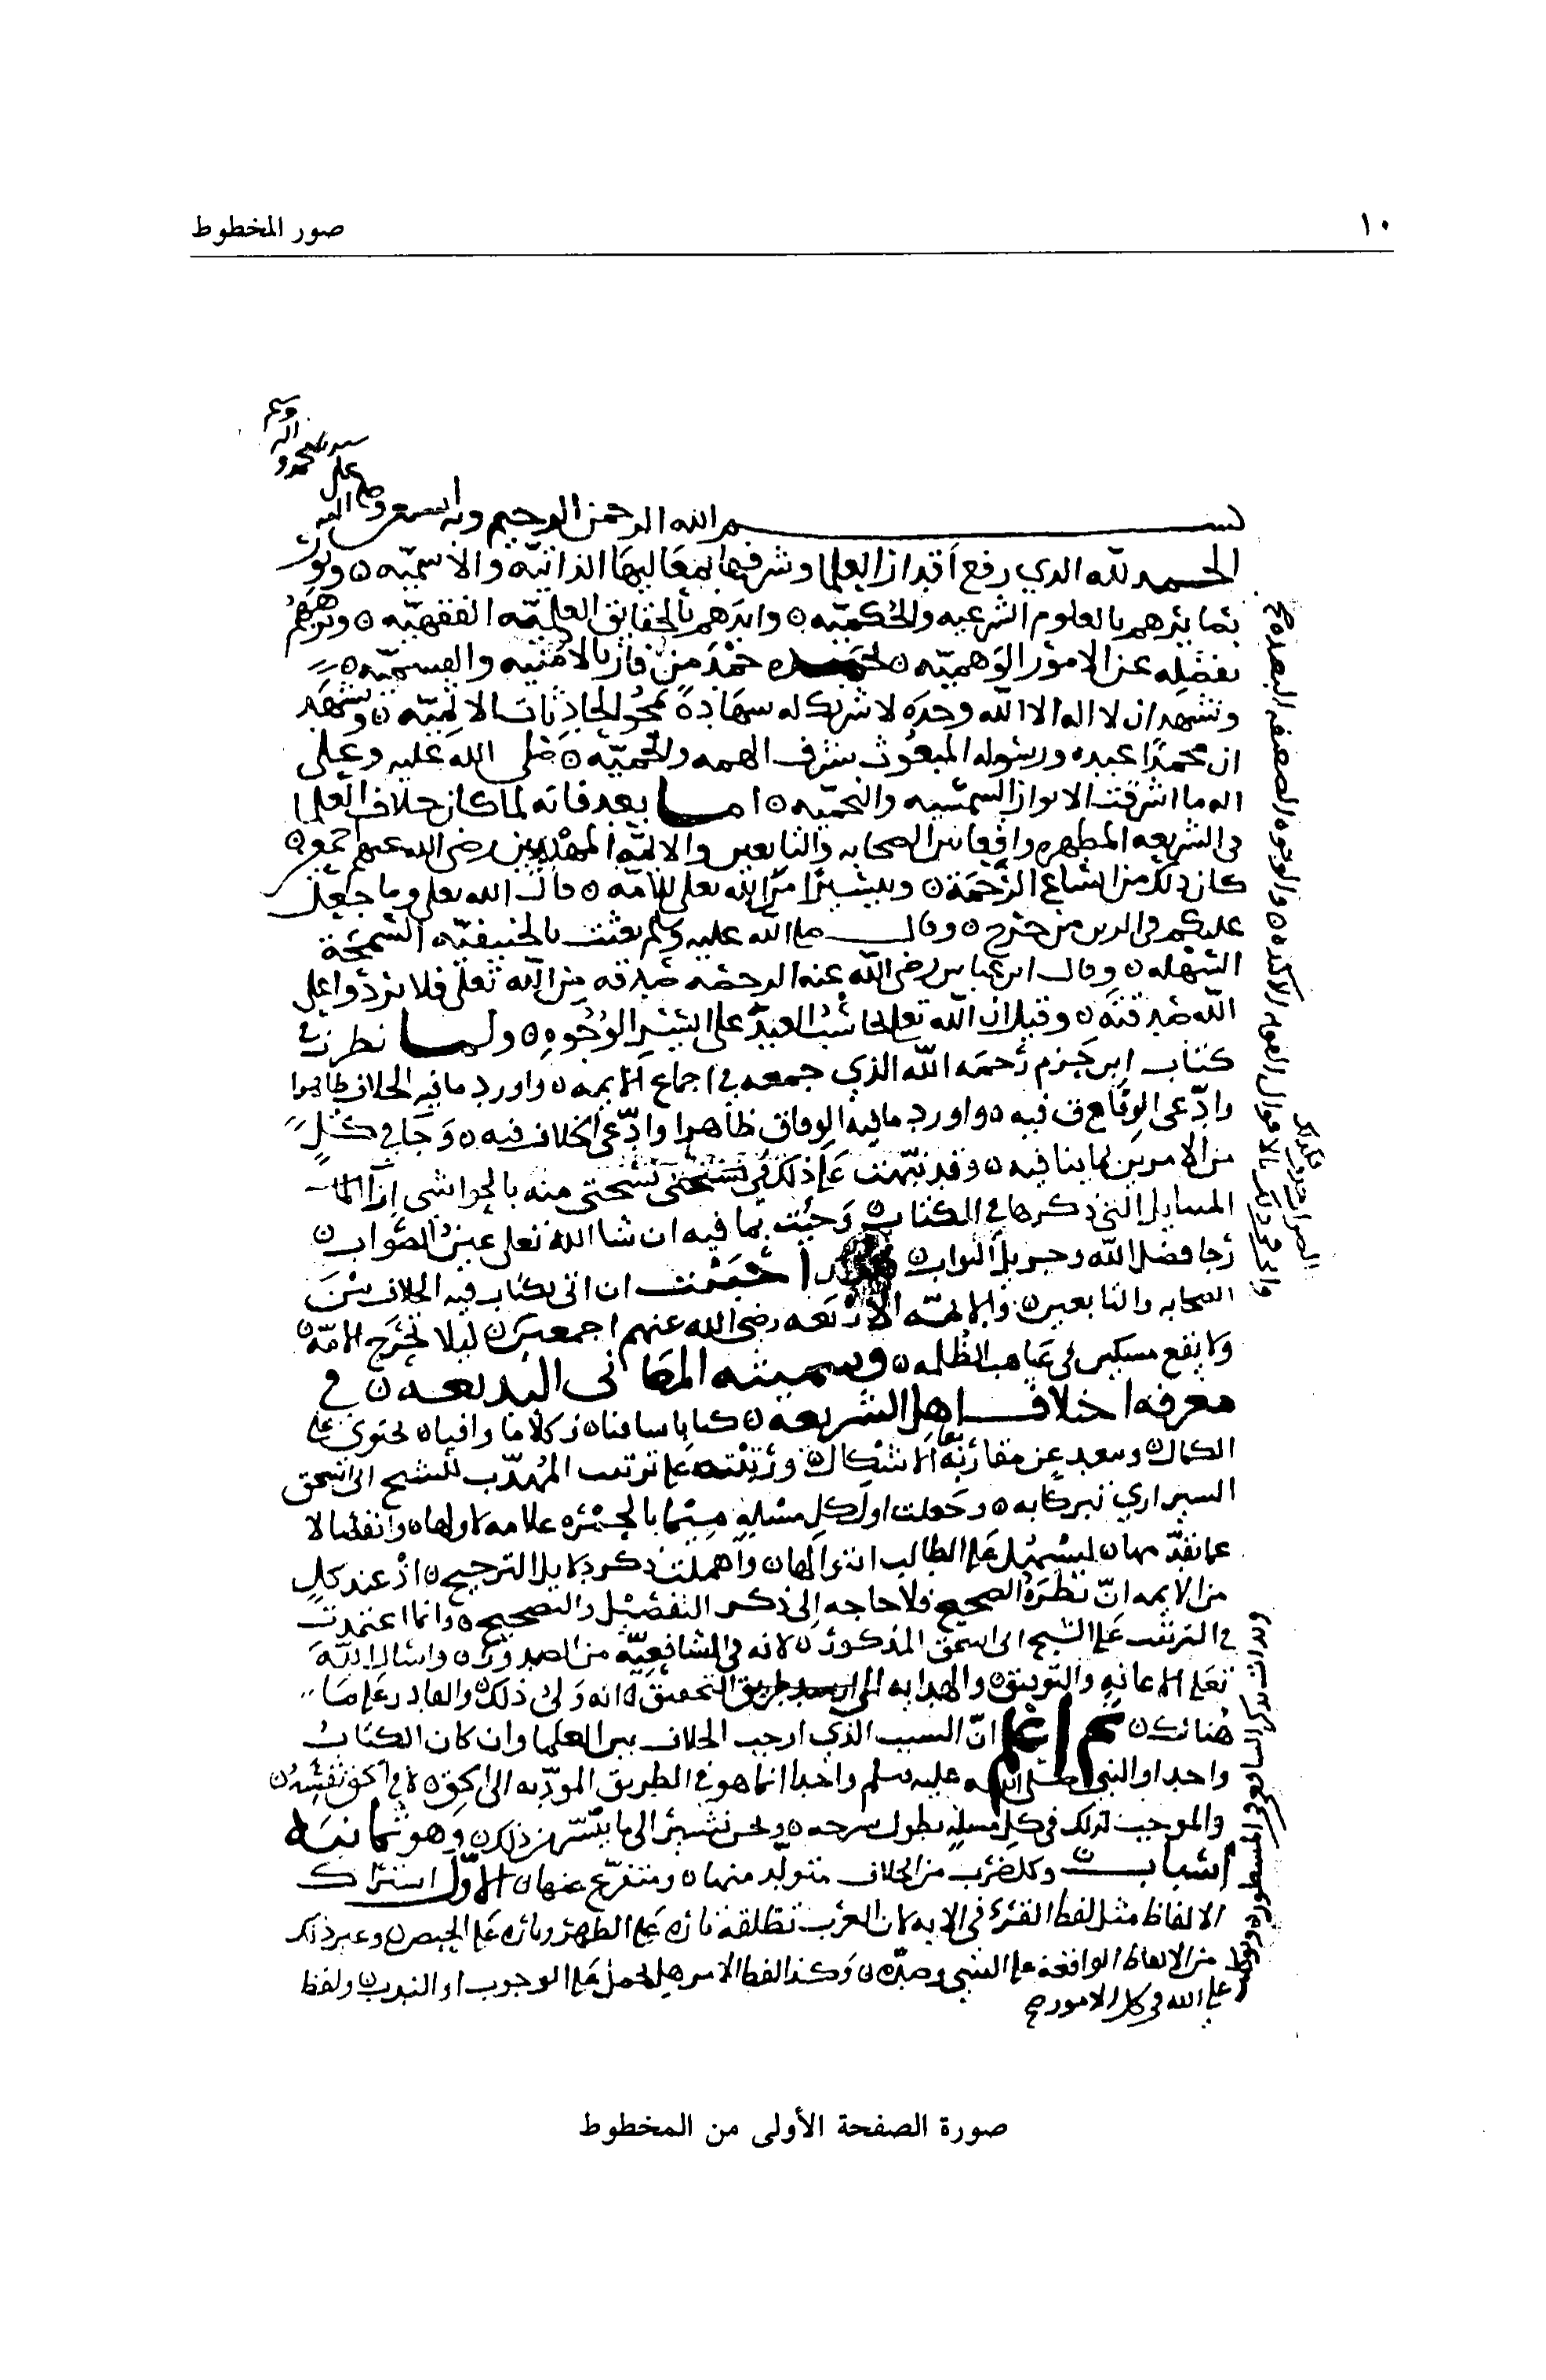 ١٠
صور المخطوط
بسم الله الرحمن الرحيم وبه
الحمد لله الذي رفع أقدار العلما وشرفها بمعاليها الذاتيه والاسميه
بالعلوم الشرعيه والحكميه وايدهم بالحقايق العلميه الفقهيه
بفضله عن الامور الوهميه نحمده حمد من فاز بالامنيه والقسميه
ونشهد ان لا اله الا الله وحده لا شريك له شهادة تمحو الحادثات ونشهد
ان محمدا عبده ورسوله المبعوث بشرف الهمه والحميه صلى الله عليه وعلى
اله ما اشرقت الانوار الشمسيه والنجميه اما بعد فانه لما كان خلاف العلما
في الشريعه المطهره واقعا من الصحابه والتابعين والايمه المهديين رضي الله عنهم
كان ذلك من اتساع الرحمة وتيسيرا من الله تعلى للامه قال الله تعلى وما جعل
عليكم في الدين من حرج وقال صلى الله عليه وسلم بعثت بالحنيفيه السمحة
السهله وقال ابن عباس رضي الله عنه الرخصه صدقه من الله تعلى فلا تردوا على
الله صدقته وقيل ان الله تعالى العبد على ايسر الوجوه ولما نظرت في
كتاب ابن حزم رحمه الله الذي جمعه في اجماع الايمه واورد ما فيه الخلاف ظاهرا
وادعى الوفاق فيه واورد ما فيه الوفاق ظاهرا وادعى الخلاف فيه وجا في كل
من الامرين بما ينافيه وقد نبهت على ذلك في نسختي منه بالحواشي
المسايل التي ذكرها في الكتاب وجيت بما فيه ان شا الله تعلى عين الصواب
رجا فضل الله وجزيل الثواب أحببت ان اتي بكتاب فيه الخلاف بين
الصحابه والتابعين والايمه الاربعه رضي الله عنهم اجمعين ليلا تحرج الامه
ولا يقع مسكين في غياهب الظلمه وسميته المعاني البديعه في
معرفه اختلاف اهل الشريعه كتابا شافيا وكلاما وافيا يحتوي على
الكمال ويبعد عن مقاربة الاشكال ورتبته على ترتيب المهذب للشيخ ابي اسحق
الشيرازي تبركا به وجعلت اول كل مسيله ميما بالحمره علامه لاولها وانفصالا
عما تقدمها ليسهل على الطالب واهملت ذكر دلايل الترجيح اذ عند كل
من الايمه ان نظره الصحيح فلا حاجه إلى ذكر التفصيل والتصحيح وانما اعتمدت
في الترتيب على الشيخ ابي اسحق المذكور لانه في الشافعيه من الصدور واسال الله
تعلى الاعانه والتوفيق والهدايه الى ارشد طريق التحقيق انه ولي ذلك والقادر على ما
هنالك ثم اعلم انّ السبب الذي اوجب الخلاف بين العلما وان كان الكتاب
واحدا والنبي صلى الله عليه وسلم واحدا انما هو في الطريق المودّيه الى الحق لا في الحق نفسه
والموجب لذلك في كل مسيله يطول شرحه ونحن نشير الى ما يتيسر من ذلك وهو ثمانية
اسباب وكل ضرب من الخلاف متولّد منها ومتفرّع عنها الاوّل اشتراك
الالفاظ مثل لفظ القرء في الايه لان العرب تطلقه تاره على الطهر وتاره على الحيض وغير ذلك
من الالفاظ الواقعه على الشي وضدّه وكذا لفظ الامر هل يحمل على الوجوب او الندب ولفظ
على الله في كل الامور
صورة الصفحة الأولى من المخطوط